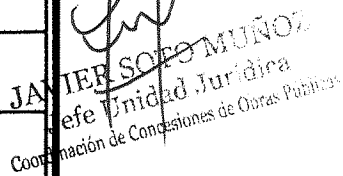 JAVIER SOTO MUÑOZ
efe Unidad Jurídica
Coordinación de Concesiones de Obras Públicas